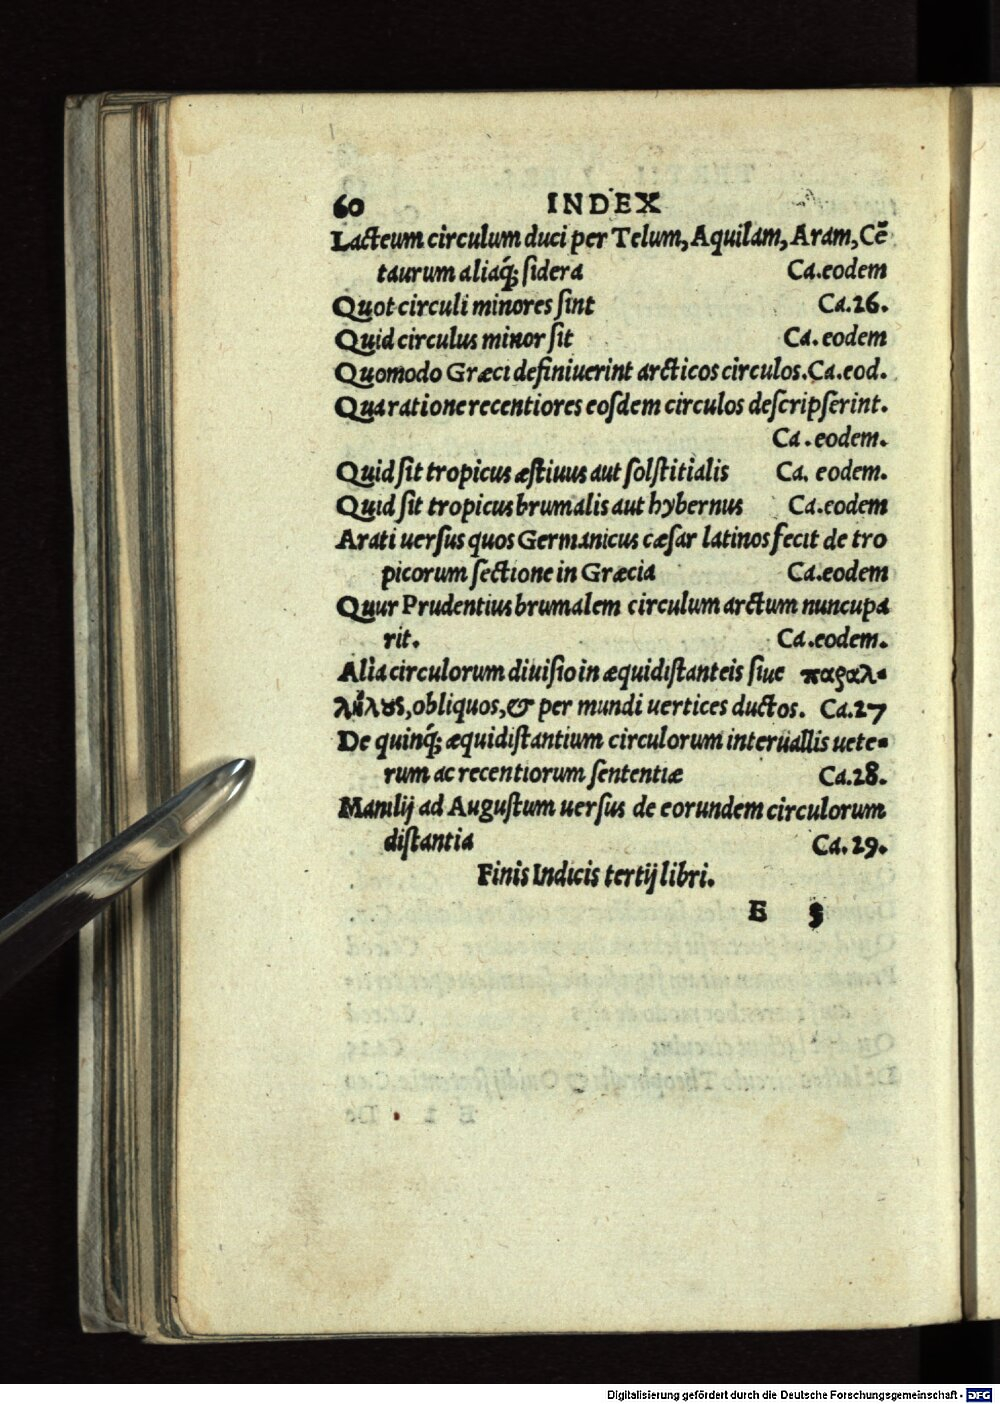 60 INDEX
Lacteum circulum duci per Telum, Aquilam, Aram, Cē
taurum aliaq́; ſidera Ca.eodem
Quot circuli minores ſint Ca.26.
Quid circulus minor ſit Ca.eodem
Quomodo Græci definiuerint arcticos circulos.Ca.eod.
Qua ratione recentiores eoſdem circulos deſcripſerint.
Ca.eodem.
Quid ſit tropicus æſtiuus aut ſolſtitialis Ca. eodem.
Quid ſit tropicus brumalis aut hybernus Ca.eodem
Arati uerſus quos Germanicus cæſar latinos fecit de tro
picorum ſectione in Græcia Ca.eodem
Quur Prudentius brumalem circulum arctum nuncupa
rit. Ca.eodem.
Alia circulorum diuiſio in æquidiſtanteis ſiue παραλ-
λήλους, obliquos, & per mundi uertices ductos. Ca.27
De quinq́; æquidiſtantium circulorum interuallis uete-
rum ac recentiorum ſententiæ Ca.28.
Manilij ad Auguſtum uerſus de eorundem circulorum
diſtantia Ca.29.
Finis Indicis tertij libri.
E 3
Digitalisierung gefördert durch die Deutsche Forschungsgemeinschaft - DFG